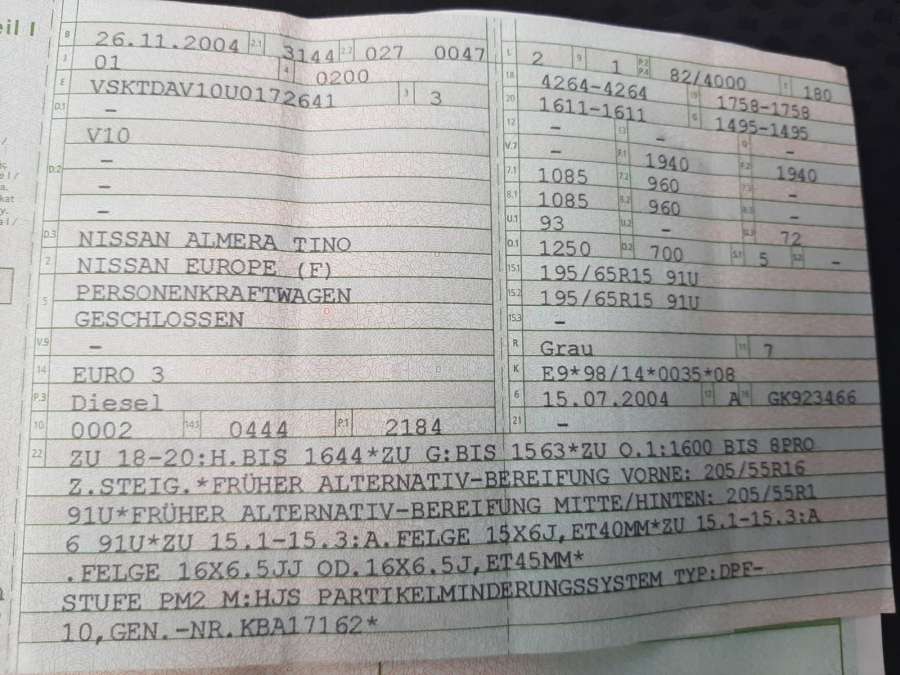 eil I
B 26.11.2004 2.1 3144 2.2 027 0047
J 01 4 0200
E VSKTDAV10U0172641 3 3
D.1 –
V10
–
D.2 –
–
D.3 NISSAN ALMERA TINO
2 NISSAN EUROPE (F)
5 PERSONENKRAFTWAGEN
GESCHLOSSEN
V.9 –
14 EURO 3
P.3 Diesel
10 0002 14.1 0444 P.1 2184
L 2 9 1 P.2 P.4 82/4000 T 180
18 4264-4264 19 1758-1758
20 1611-1611 G 1495-1495
12 – 13 – Q –
V.7 – F.1 1940 F.2 1940
7.1 1085 7.2 960 7.3 –
8.1 1085 8.2 960 8.3 –
U.1 93 U.2 – U.3 72
O.1 1250 O.2 700 S.1 5 S.2 –
15.1 195/65R15 91U
15.2 195/65R15 91U
15.3 –
R Grau 11 7
K E9*98/14*0035*08
6 15.07.2004 17 A 16 GK923466
21 –
22 ZU 18-20:H.BIS 1644*ZU G:BIS 1563*ZU O.1:1600 BIS 8PRO
Z.STEIG.*FRÜHER ALTERNATIV-BEREIFUNG VORNE: 205/55R16
91U*FRÜHER ALTERNATIV-BEREIFUNG MITTE/HINTEN: 205/55R1
6 91U*ZU 15.1-15.3:A.FELGE 15X6J,ET40MM*ZU 15.1-15.3:A
.FELGE 16X6.5JJ OD.16X6.5J,ET45MM*
STUFE PM2 M:HJS PARTIKELMINDERUNGSSYSTEM TYP:DPF-
10,GEN.-NR.KBA17162*